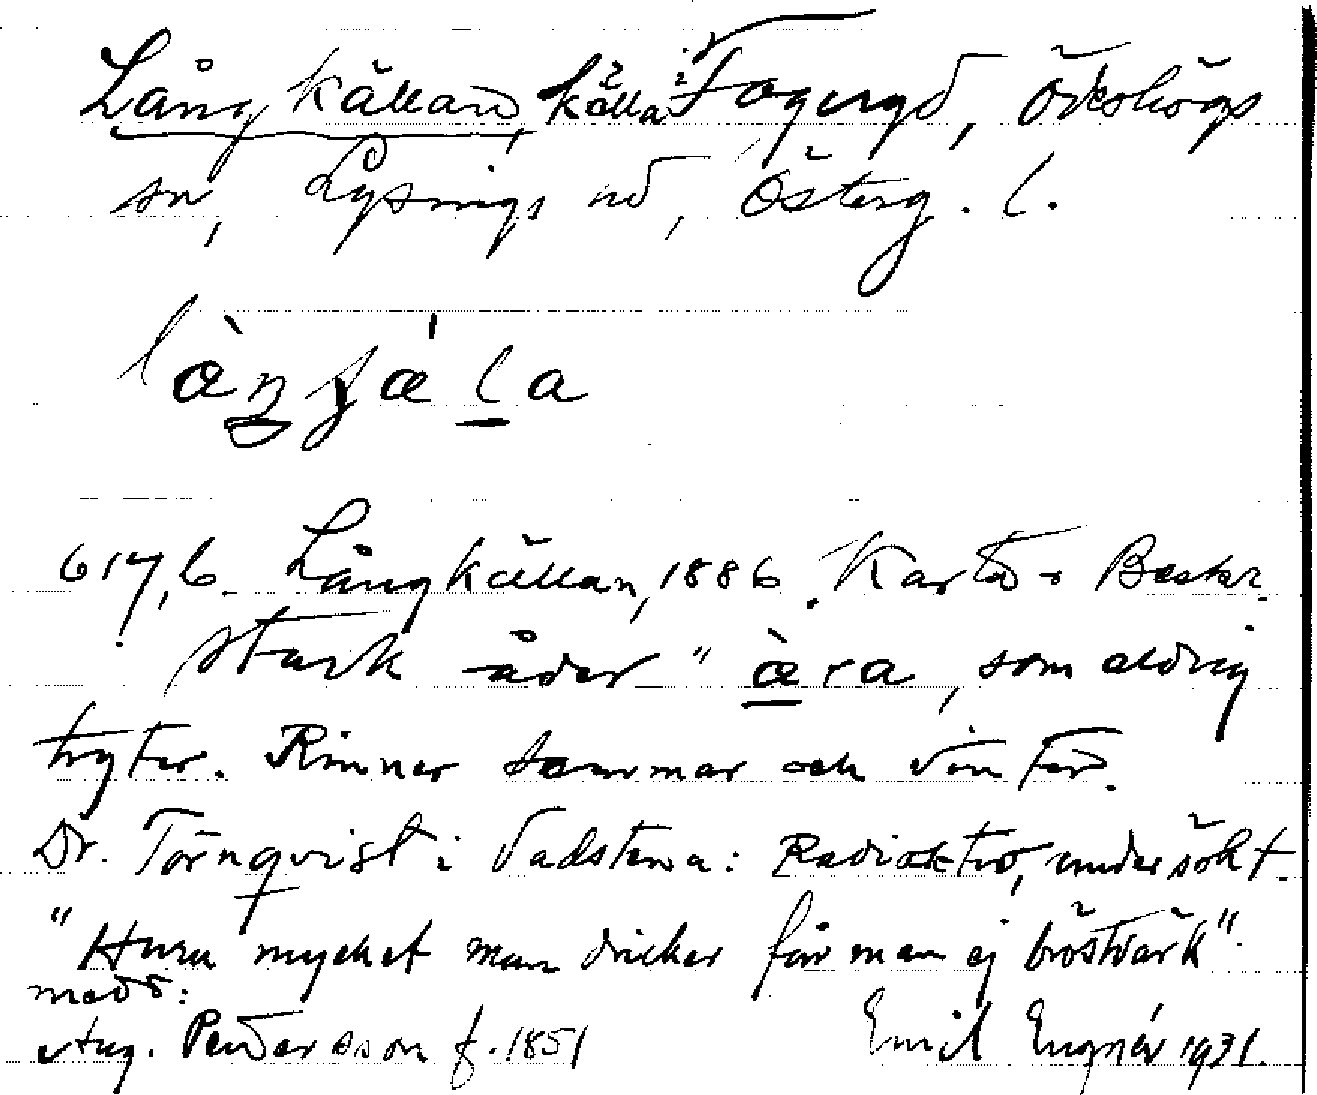 Långkällan, källa i Fagergd, Ödeshögs
sn, Lysings hd, Österg. l.
làŋɟǽla
617,6. Långkällan, 1886. Karta o Beskr.
stark åder "æ̀ra, som aldrig
tryter. Rinner sommar och vinter.
Dr. Törnqvist i Vadstena: Radioaktiv, undersökt.
"Huru mycket man dricker får man ej bröstvärk".
medd:
Aug. Pettersson f. 1851 Emil Engnér 1931.